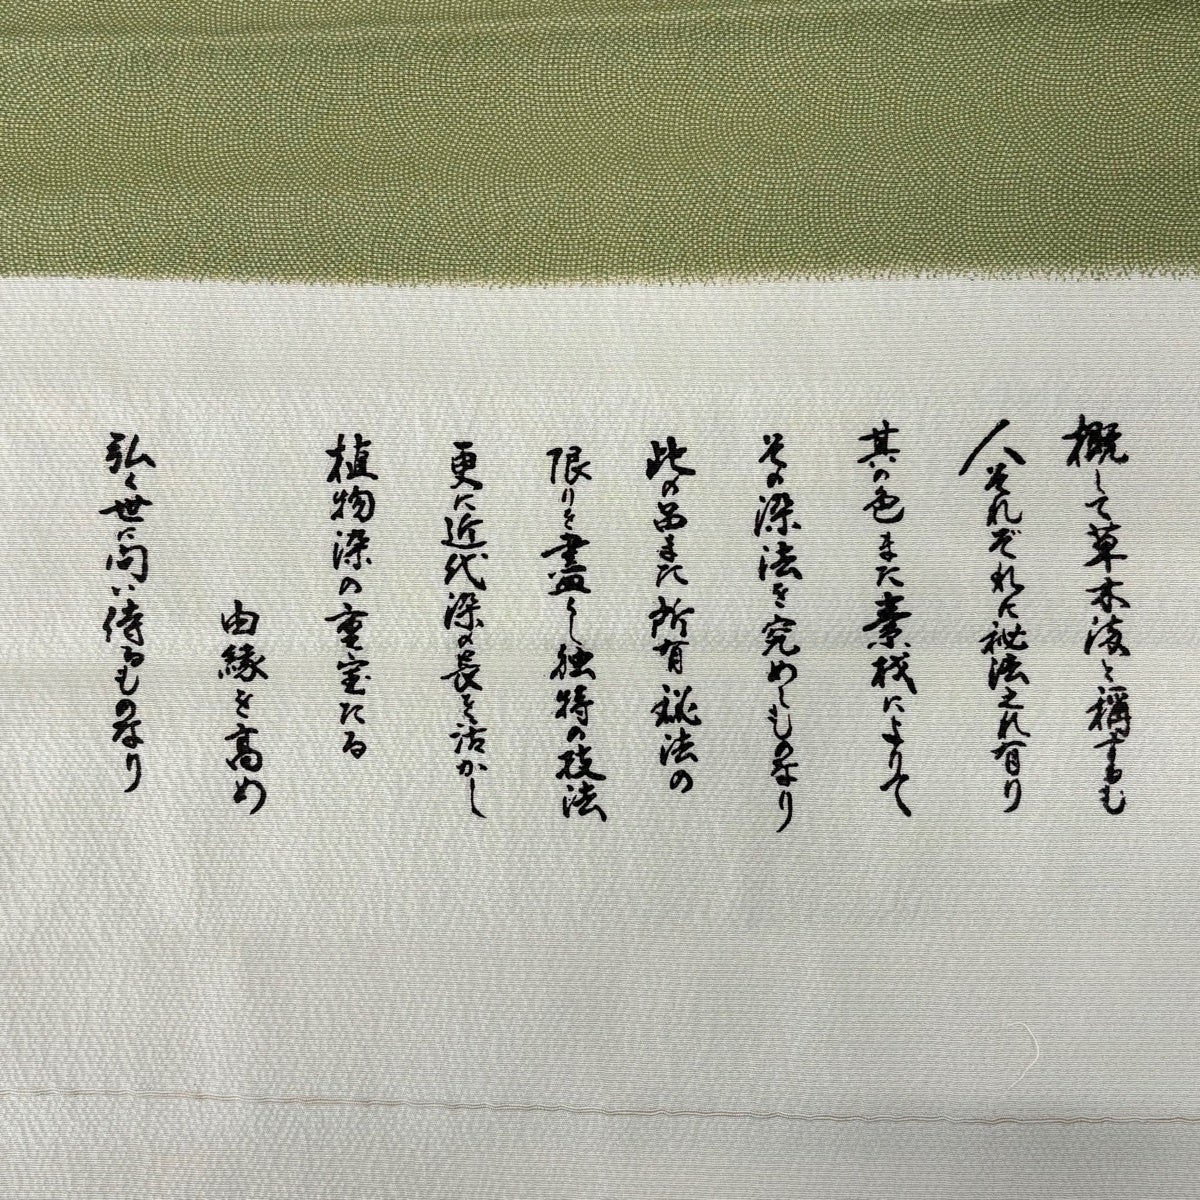 概して草木染と稱するも
人それぞれに祕法之れ有り
其の色また素材によりて
その染法を究めしものなり
此の品また所有祕法の
限りを盡し独特の技法
更に近代染の長を活かし
植物染の重宝たる
由縁を高め
弘く世に問い侍るものなり